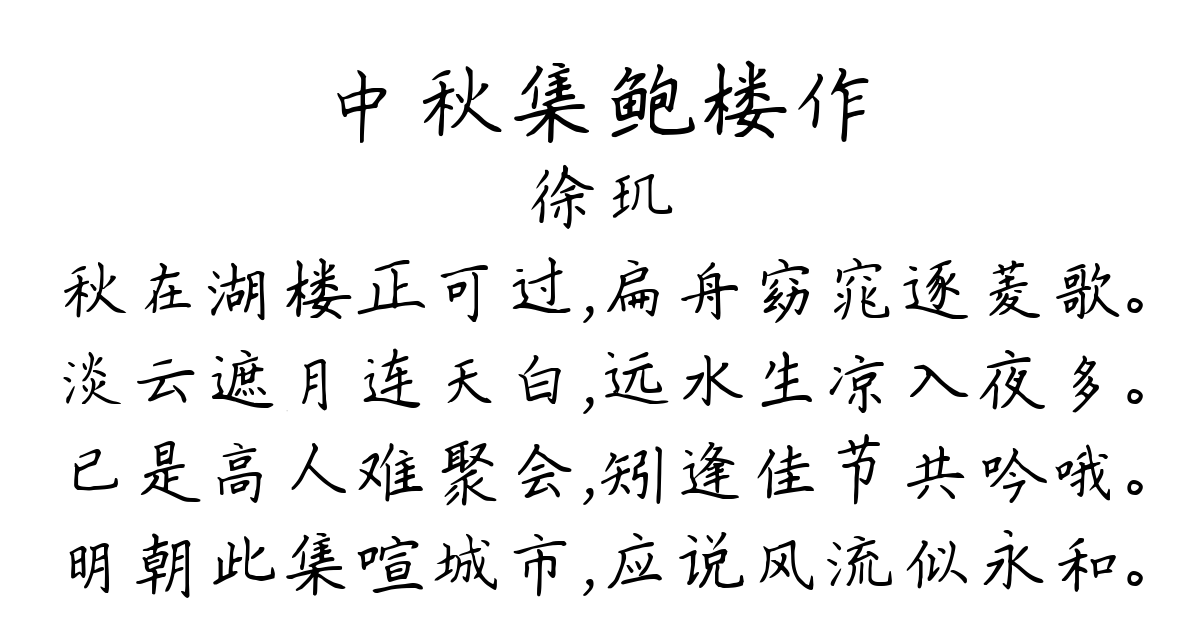 中秋集鲍楼作
徐玑
秋在湖楼正可过,扁舟窈窕逐菱歌。
淡云遮月连天白,远水生凉入夜多。
已是高人难聚会,矧逢佳节共吟哦。
明朝此集喧城市,应说风流似永和。